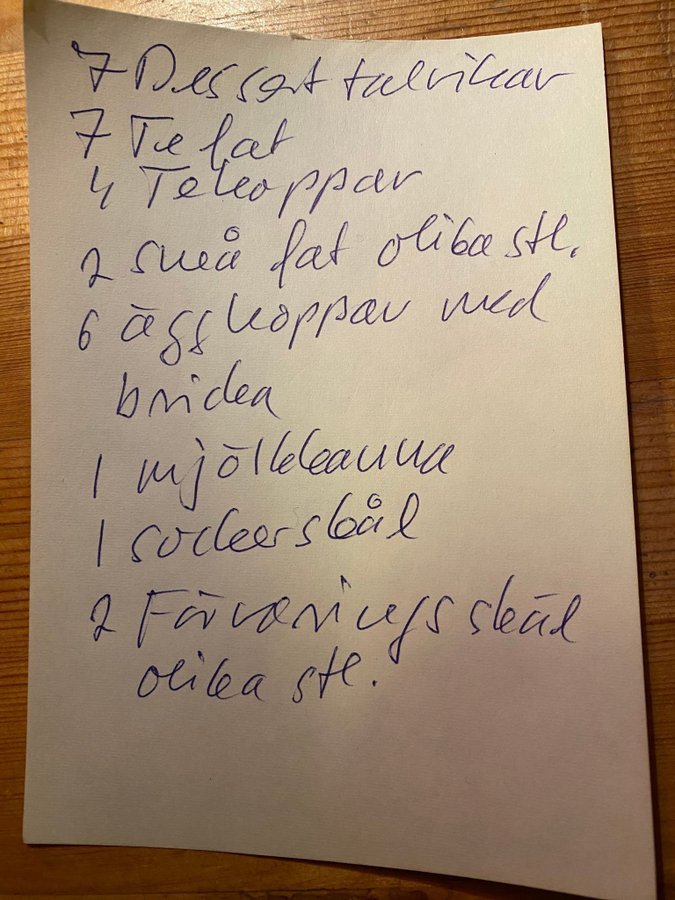 7 Dessert talrikar
7 Te fat
4 Tekoppar
2 små fat olika stl.
6 äggkoppar med
bricka
1 mjölkkanna
1 sockerskål
2 Förvaringsskål
olika stl.